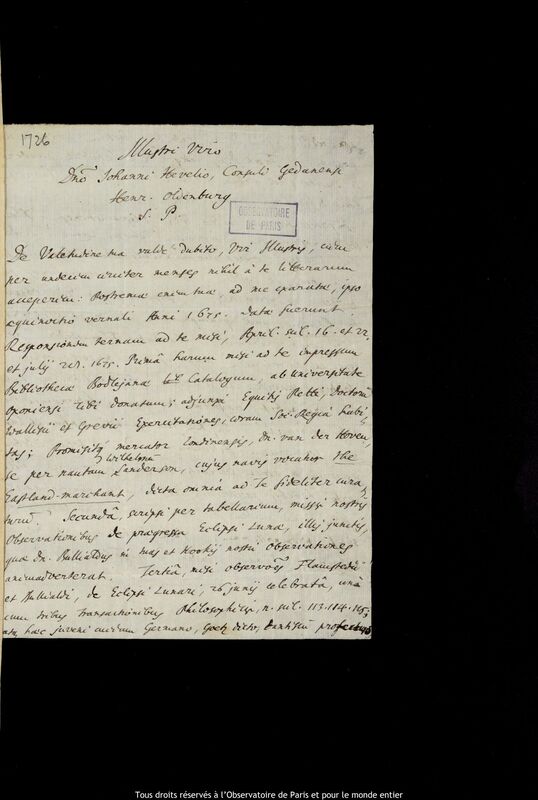 1726
Illustri Viro
Dno Johanni Hevelio, Consuli Gedanensi
Henr. Oldenburg
S. P.
OBSERVATOIRE
DE PARIS
De Valetudine tua valde dubito, Vir Illustris, cum
per undecim circiter menses nihil à te litterarum
acceperim: Postrema enim tua, ad me exarata, ipso
æquinoctio vernali Anni 1675. data fuerunt.
Responsionem ternam ad te misi, April. scil. 16. et 22.
et julij 1675. Primâ harum misi ad te impressum
Bibliothecæ Bodlejanæ Catalogum, ab Universitate
Oxoniensi tibi donatum; adjunxi Equitis Petti, Doctorũ
Wallisii et Grevii Exercitationes, coram Soc. Regiâ habi-
tas; Promisitq mercator Londinensis, dn. van der Hoven,
se per nautam Wilhelmum Sanderson, cujus navis vocatur the
Eastland-marchant, dicta omnia ad te fideliter cura-
turũ. Secundâ, scripsi per tabellarium, missis nostris
Observationibus de prægressa Eclipsi Lunæ, illis junctis,
quæ dn. Bullialdus in has et Hookij nostri observationes
animadverterat. Tertiâ, misi observões Flamstedii
et Bullialdi, de Eclipsi Lunari, 26 junij celebratâ, unâ
cum tribus Transactionibus Philosophicis, n. scil. 113. 114. 115;
hæc juveni cuidam Germano, Goetz dicto, Dantiscũ
Tous droits réservés à l'Observatoire de Paris et pour le monde entier